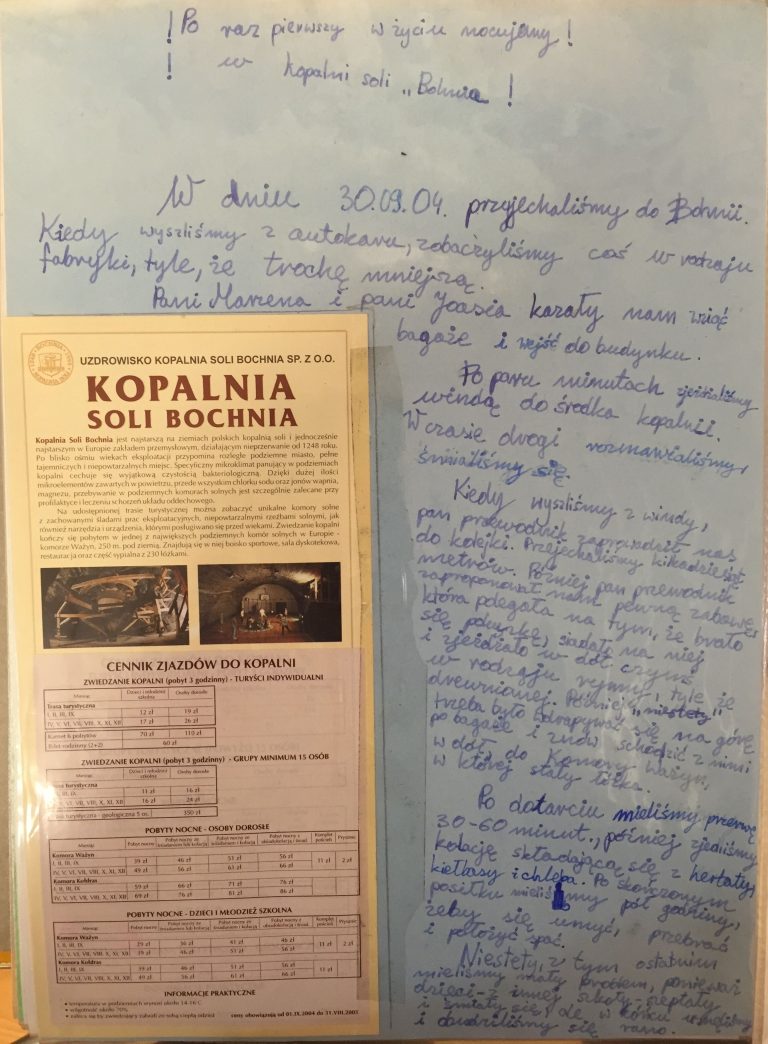 ! Po raz pierwszy w życiu nocujemy !
! w kopalni soli „Bohnia !
W dniu 30.09.04. przyjechaliśmy do Bohnii.
Kiedy wyszliśmy z autokaru, zobaczyliśmy coś w rodzaju
fabryki, tyle, że trochę mniejszą.
Pani Marzena i pani Joasia kazały nam wziąć
bagaże i wejść do budynku.
Po paru minutach zjechaliśmy
windą do środka kopalni.
W czasie drogi rozmawialiśmy,
śmialiśmy się.
Kiedy wyszliśmy z windy,
pan przewodnik zaprowadził nas
do kolejki. Przejechaliśmy kilkadziesiąt
metrów. Później pan przewodnik
zaproponował nam pewną zabawę,
która polegała na tym, że brało
się poduszkę, siadało na niej
i zjeżdżało w dół czymś
w rodzaju rynny, tyle że
drewnianej. Później „niestety"
trzeba było wdrapywać się na górę
po bagaże i znów schodzić z nimi
w dół, do Komory Ważyn,
w której stały łóżka.
Po dotarciu mieliśmy przerwę
30-60 minut., później zjedliśmy
kolację składającą się z herbaty,
kiełbasy i chleba. Po skończonym
posiłku mieliśmy pół godziny,
żeby się umyć, przebrać
i położyć spać.
Niestety, z tym ostatnim
mieliśmy mały problem, ponieważ
dzieci z innej szkoły szeptały
i śmiały się, ale w końcu usnęliśmy
i obudziliśmy się rano.
UZDROWISKO KOPALNIA SOLI BOCHNIA SP. Z O.O.
KOPALNIA
SOLI BOCHNIA
Kopalnia Soli Bochnia jest najstarszą na ziemiach polskich kopalnią soli i jednocześnie
najstarszym w Europie zakładem przemysłowym, działającym nieprzerwanie od 1248 roku.
Po blisko ośmiu wiekach eksploatacji przypomina rozległe podziemne miasto, pełne
tajemniczych i niepowtarzalnych miejsc. Specyficzny mikroklimat panujący w podziemiach
kopalni cechuje się wyjątkową czystością bakteriologiczną. Dzięki dużej ilości
mikroelementów zawartych w powietrzu, przede wszystkim chlorku sodu oraz jonów wapnia,
magnezu, przebywanie w podziemnych komorach solnych jest szczególnie zalecane przy
profilaktyce i leczeniu schorzeń układu oddechowego.
Na udostępnionej trasie turystycznej można zobaczyć unikalne komory solne
z zachowanymi śladami prac eksploatacyjnych, niepowtarzalnymi rzeźbami solnymi, jak
również narzędzia i urządzenia, którymi posługiwano się przed wiekami. Zwiedzanie kopalni
kończy się pobytem w jednej z największych podziemnych komór solnych w Europie -
komorze Ważyn, 250 m. pod ziemią. Znajdują się w niej boisko sportowe, sala dyskotekowa,
restauracja oraz część sypialna z 230 łóżkami.
CENNIK ZJAZDÓW DO KOPALNI
ZWIEDZANIE KOPALNI (pobyt 3 godzinny) - TURYŚCI INDYWIDUALNI
Miesiąc Dzieci i młodzież szkolna Osoby dorosłe
Trasa turystyczna
I, II, III, IX 12 zł 19 zł
IV, V, VI, VII, VIII, X, XI, XII 17 zł 26 zł
Karnet 6 pobytów 70 zł 110 zł
Bilet rodzinny (2+2) 60 zł
ZWIEDZANIE KOPALNI (pobyt 3 godzinny) - GRUPY MINIMUM 15 OSÓB
Miesiąc Dzieci i młodzież szkolna Osoby dorosłe
Trasa turystyczna
I, II, III, IX 11 zł 16 zł
IV, V, VI, VII, VIII, X, XI, XII 16 zł 24 zł
Trasa turystyczna - geologiczna 5 os. 350 zł
POBYTY NOCNE - OSOBY DOROSŁE
Miesiąc Pobyt nocny Pobyt nocny ze śniadaniem lub kolacją Pobyt nocny ze śniadaniem i kolacją Pobyt nocny z Komplet pościeli Prysznic
Komora Ważyn
I, II, III, IX 39 zł 46 zł 51 zł 56 zł 11 zł 2 zł
IV, V, VI, VII, VIII, X, XI, XII 49 zł 56 zł 61 zł 66 zł
Komora Kołdras
I, II, III, IX 59 zł 66 zł 71 zł 76 zł
IV, V, VI, VII, VIII, X, XI, XII 69 zł 76 zł 81 zł 86 zł
POBYTY NOCNE - DZIECI I MŁODZIEŻ SZKOLNA
Miesiąc Pobyt nocny Pobyt nocny ze śniadaniem lub kolacją Pobyt nocny ze śniadaniem i kolacją Pobyt nocny z Komplet pościeli Prysznic
Komora Ważyn
I, II, III, IX 29 zł 36 zł 41 zł 46 zł 11 zł 2 zł
IV, V, VI, VII, VIII, X, XI, XII 39 zł 46 zł 51 zł 56 zł
Komora Kołdras
I, II, III, IX 39 zł 46 zł 51 zł 56 zł 11 zł
IV, V, VI, VII, VIII, X, XI, XII 49 zł 56 zł 61 zł 66 zł
INFORMACJE PRAKTYCZNE
• temperatura w podziemiach wynosi około 14-16°C
• wilgotność około 70%
• zaleca się by zwiedzający zabrali ze sobą ciepłą odzież
ceny obowiązują od 01.IX.2004 do 31.VIII.2005